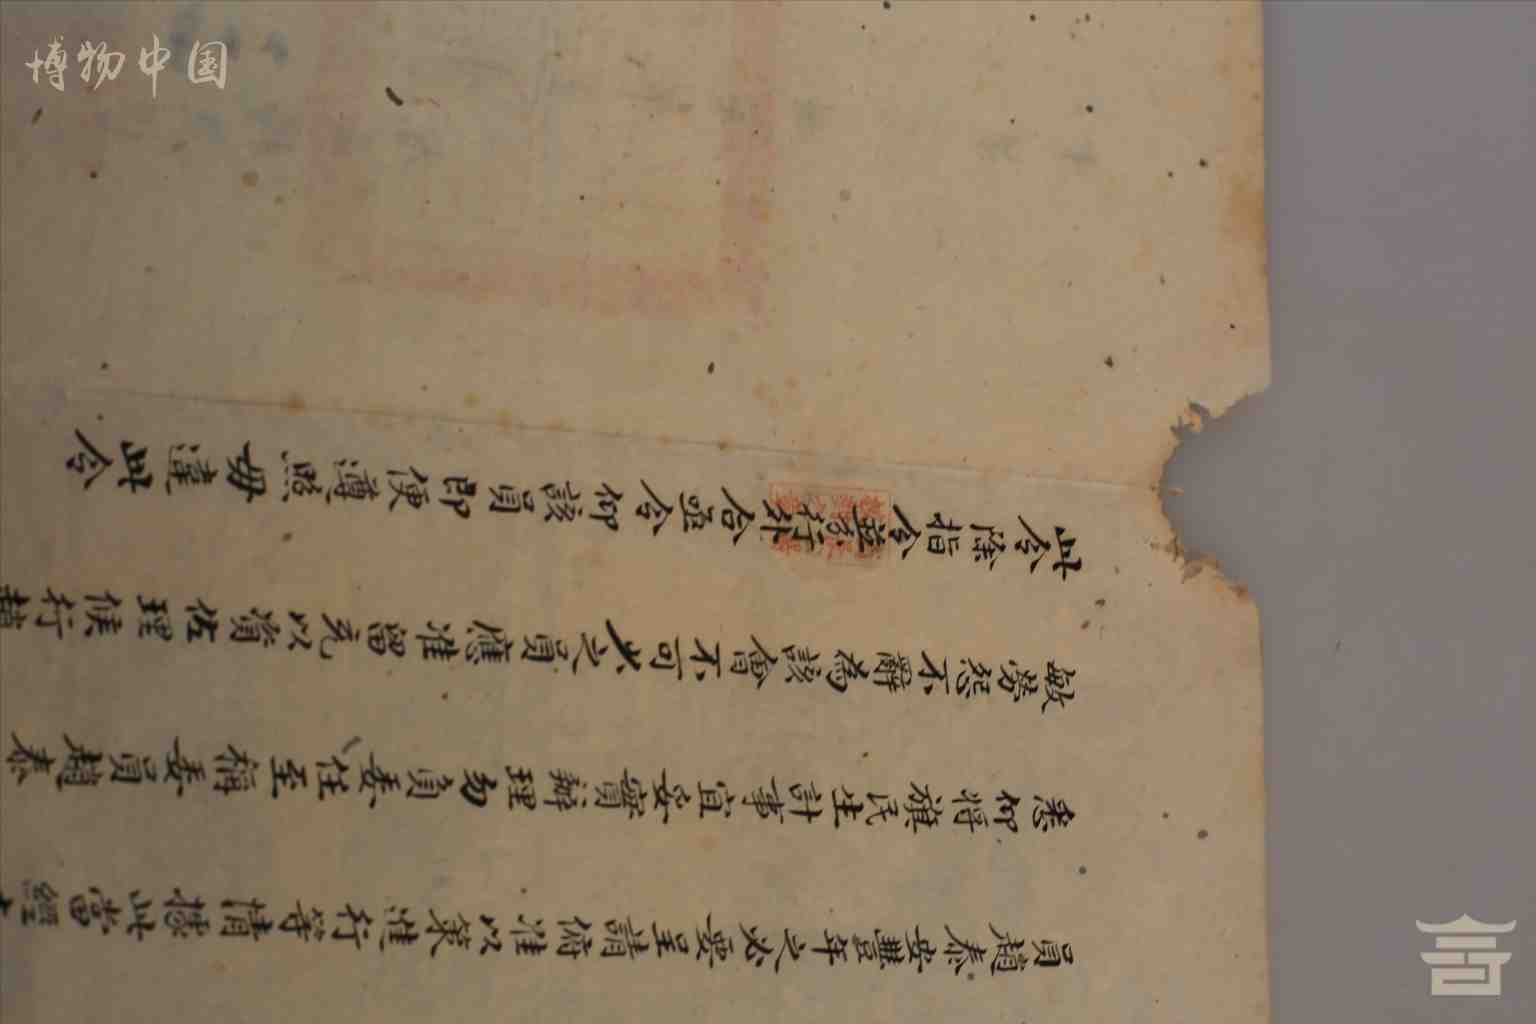 博物中国
員趙泰安豐年之必要呈請俯准以策進行等情據此當經
悉仰將旗民生計事宜妥實辦理勿負委任至稱委員趙泰
敏勞怨不辭為該會不可少之員應准留充以資佐理候行
此令除指令並分行外合亟令仰該員即便遵照毋違此令